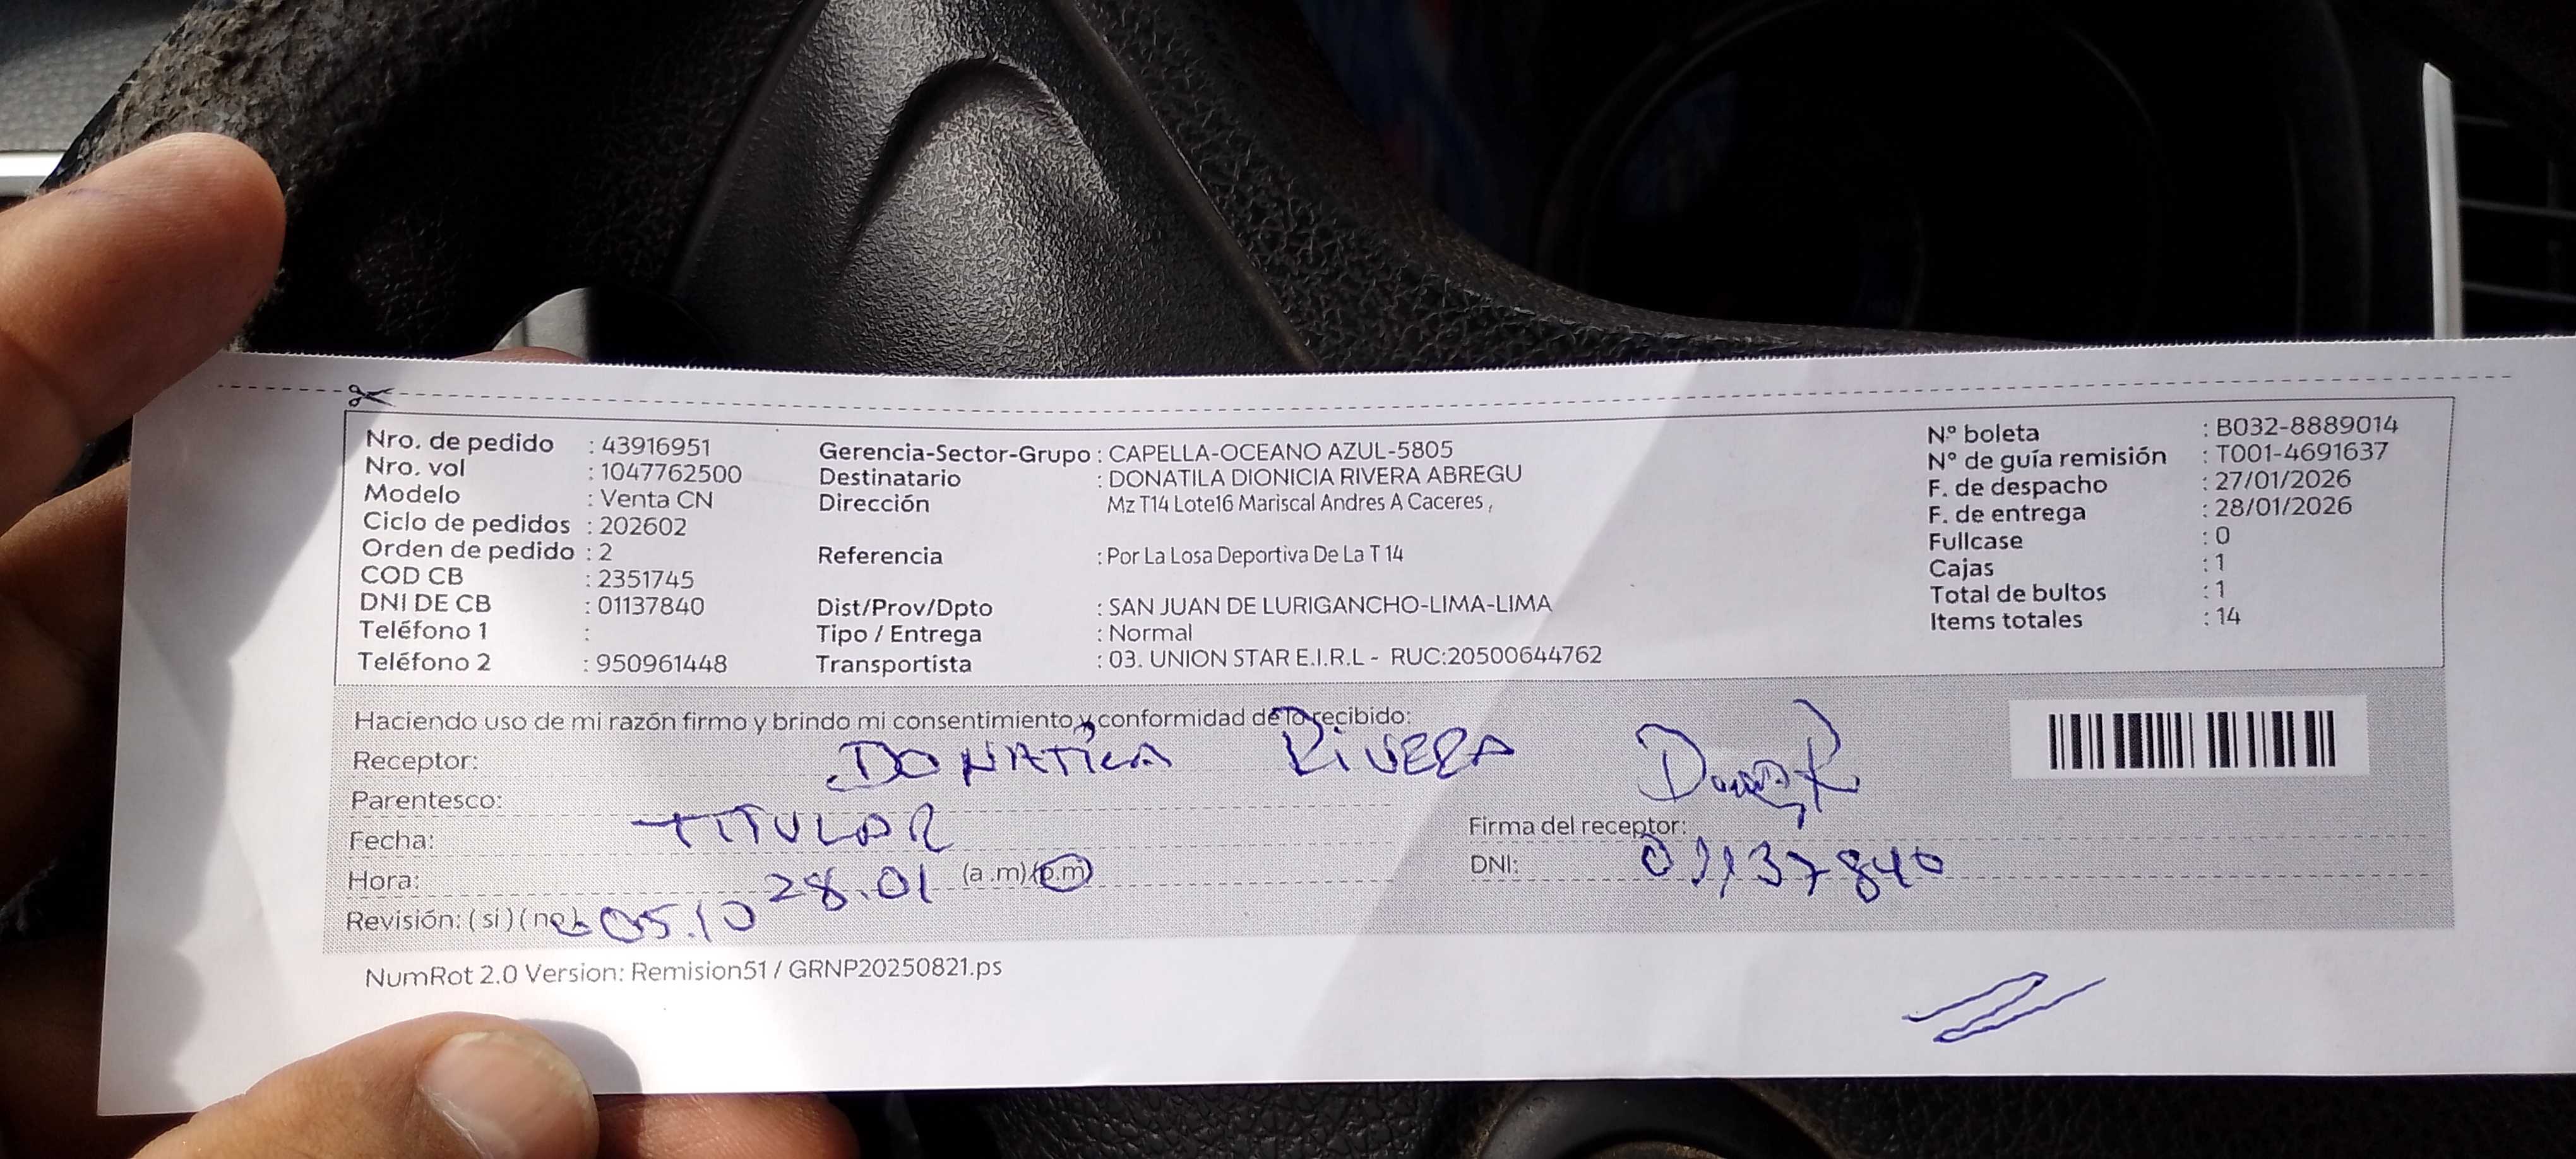 Nro. de pedido : 43916951
Nro. vol : 1047762500
Modelo : Venta CN
Ciclo de pedidos : 202602
Orden de pedido : 2
COD CB : 2351745
DNI DE CB : 01137840
Teléfono 1 :
Teléfono 2 : 950961448
Gerencia-Sector-Grupo : CAPELLA-OCEANO AZUL-5805
Destinatario : DONATILA DIONICIA RIVERA ABREGU
Dirección Mz T14 Lote16 Mariscal Andres A Caceres ,
Referencia : Por La Losa Deportiva De La T 14
Dist/Prov/Dpto : SAN JUAN DE LURIGANCHO-LIMA-LIMA
Tipo / Entrega : Normal
Transportista : 03. UNION STAR E.I.R.L - RUC:20500644762
Nº boleta : B032-8889014
Nº de guía remisión : T001-4691637
F. de despacho : 27/01/2026
F. de entrega : 28/01/2026
Fullcase : 0
Cajas : 1
Total de bultos : 1
Items totales : 14
Haciendo uso de mi razón firmo y brindo mi consentimiento y conformidad de lo recibido:
Receptor: DONATILA RIVERA
Parentesco: TITULAR
Fecha: 28.01
Hora: 05.10 (a.m)(p.m)
Revisión: (si)(no)
Firma del receptor:
DNI: 01137840
NumRot 2.0 Version: Remision51 / GRNP20250821.ps